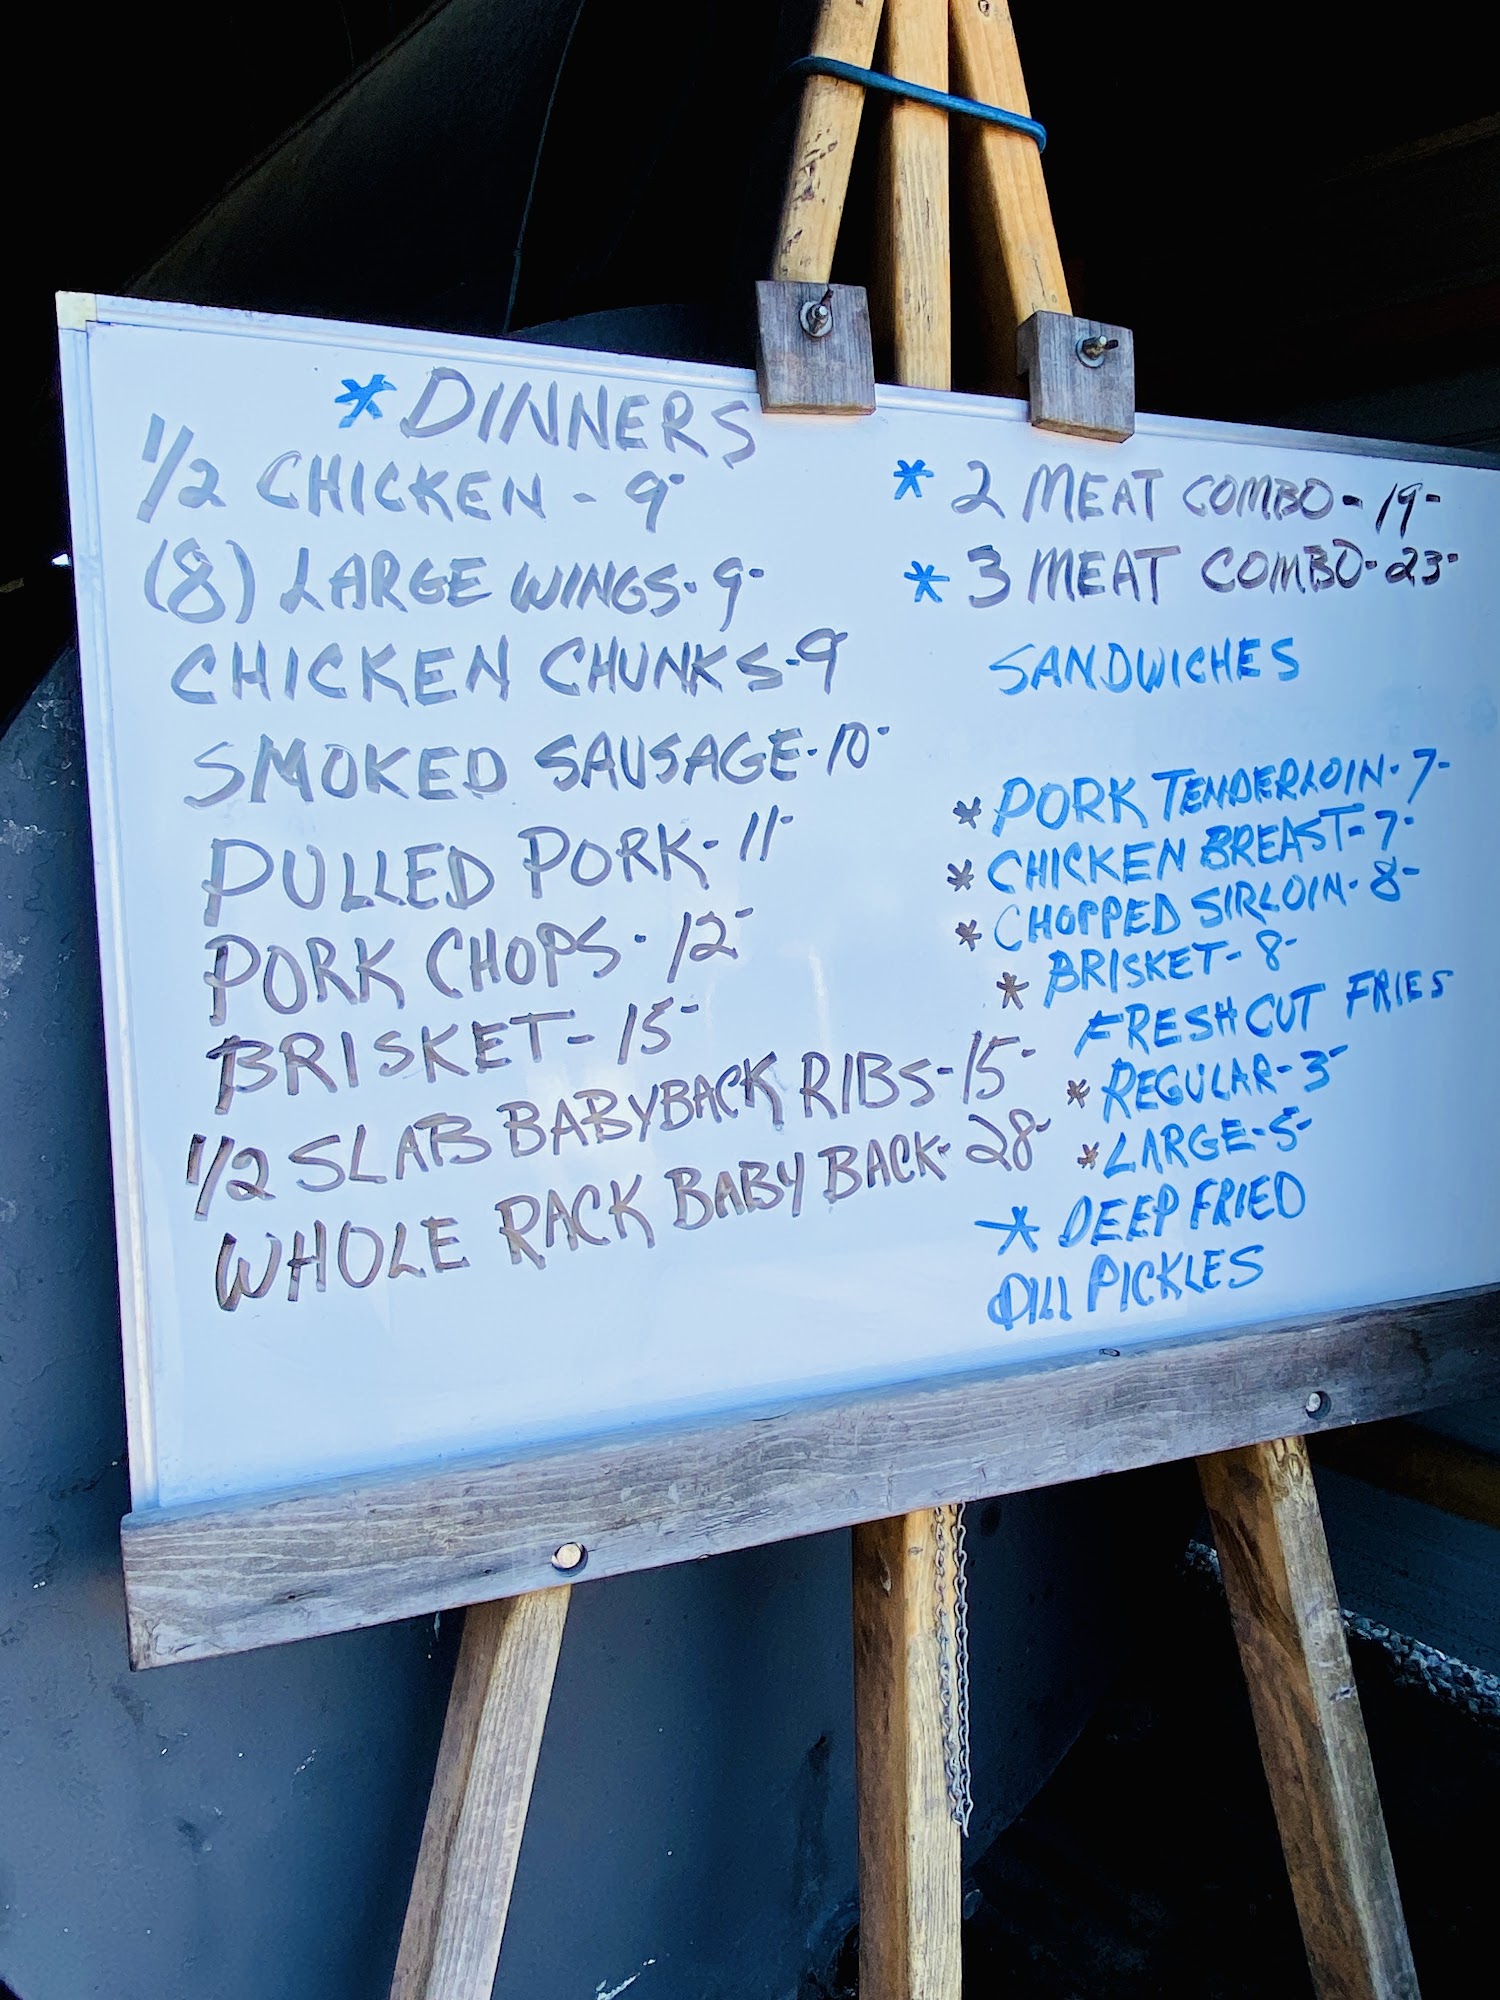 *DINNERS
1/2 CHICKEN - 9-
(8) LARGE WINGS-9-
CHICKEN CHUNKS-9
SMOKED SAUSAGE-10-
PULLED PORK-11-
PORK CHOPS-12-
BRISKET-15-
1/2 SLAB BABYBACK RIBS-15-
WHOLE RACK BABY BACK-28-
* 2 MEAT COMBO-19-
* 3 MEAT COMBO-23-
SANDWICHES
* PORK TENDERLOIN-7-
* CHICKEN BREAST-7-
* CHOPPED SIRLOIN-8-
* BRISKET-8-
FRESH CUT FRIES
* REGULAR-3-
* LARGE-5-
* DEEP FRIED
DILL PICKLES